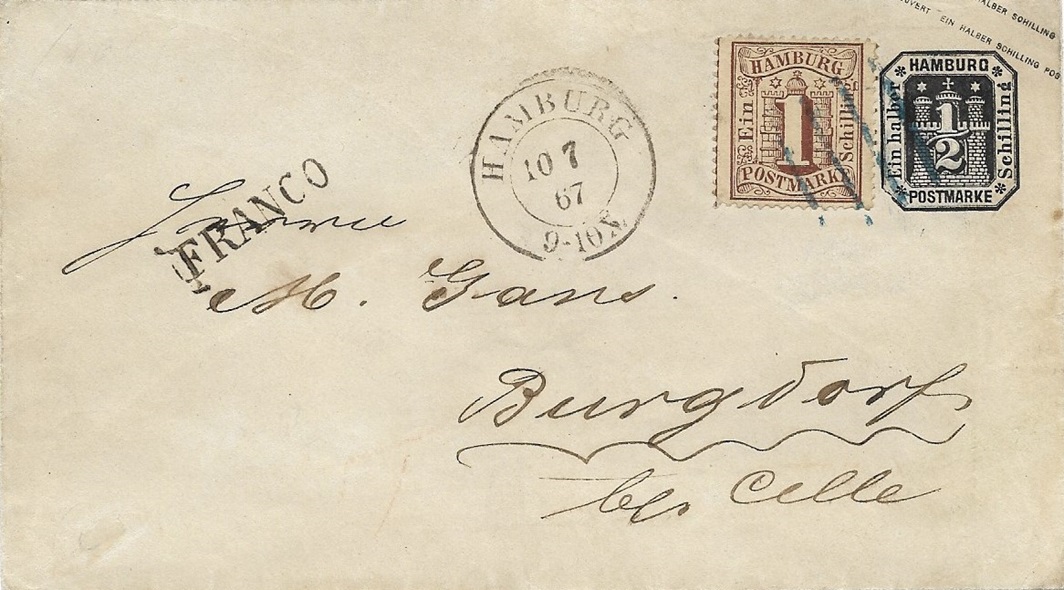 HALBER SCHILLING
UVERT EIN HALBER SCHILLING POS
HAMBURG
Ein
1
Schilling
POSTMARKE
HAMBURG
Ein halber
1/2
Schilling
POSTMARKE
HAMBURG
10 7
67
9-10
FRANCO
Herrn
M. Gans.
Burgdorf
bei Celle